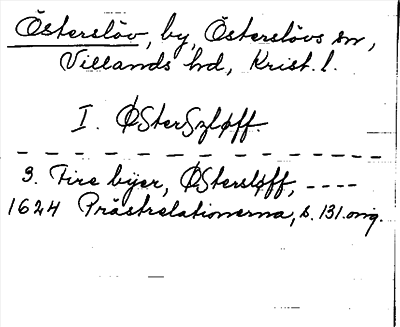 Österslöv, by, Österslövs sn,
Villands hd, Krist. l.
I. ØSterSzløff.
3. Fire byer, ØStersløff, ----
1624 Prästrelationerna, s. 131. orig.